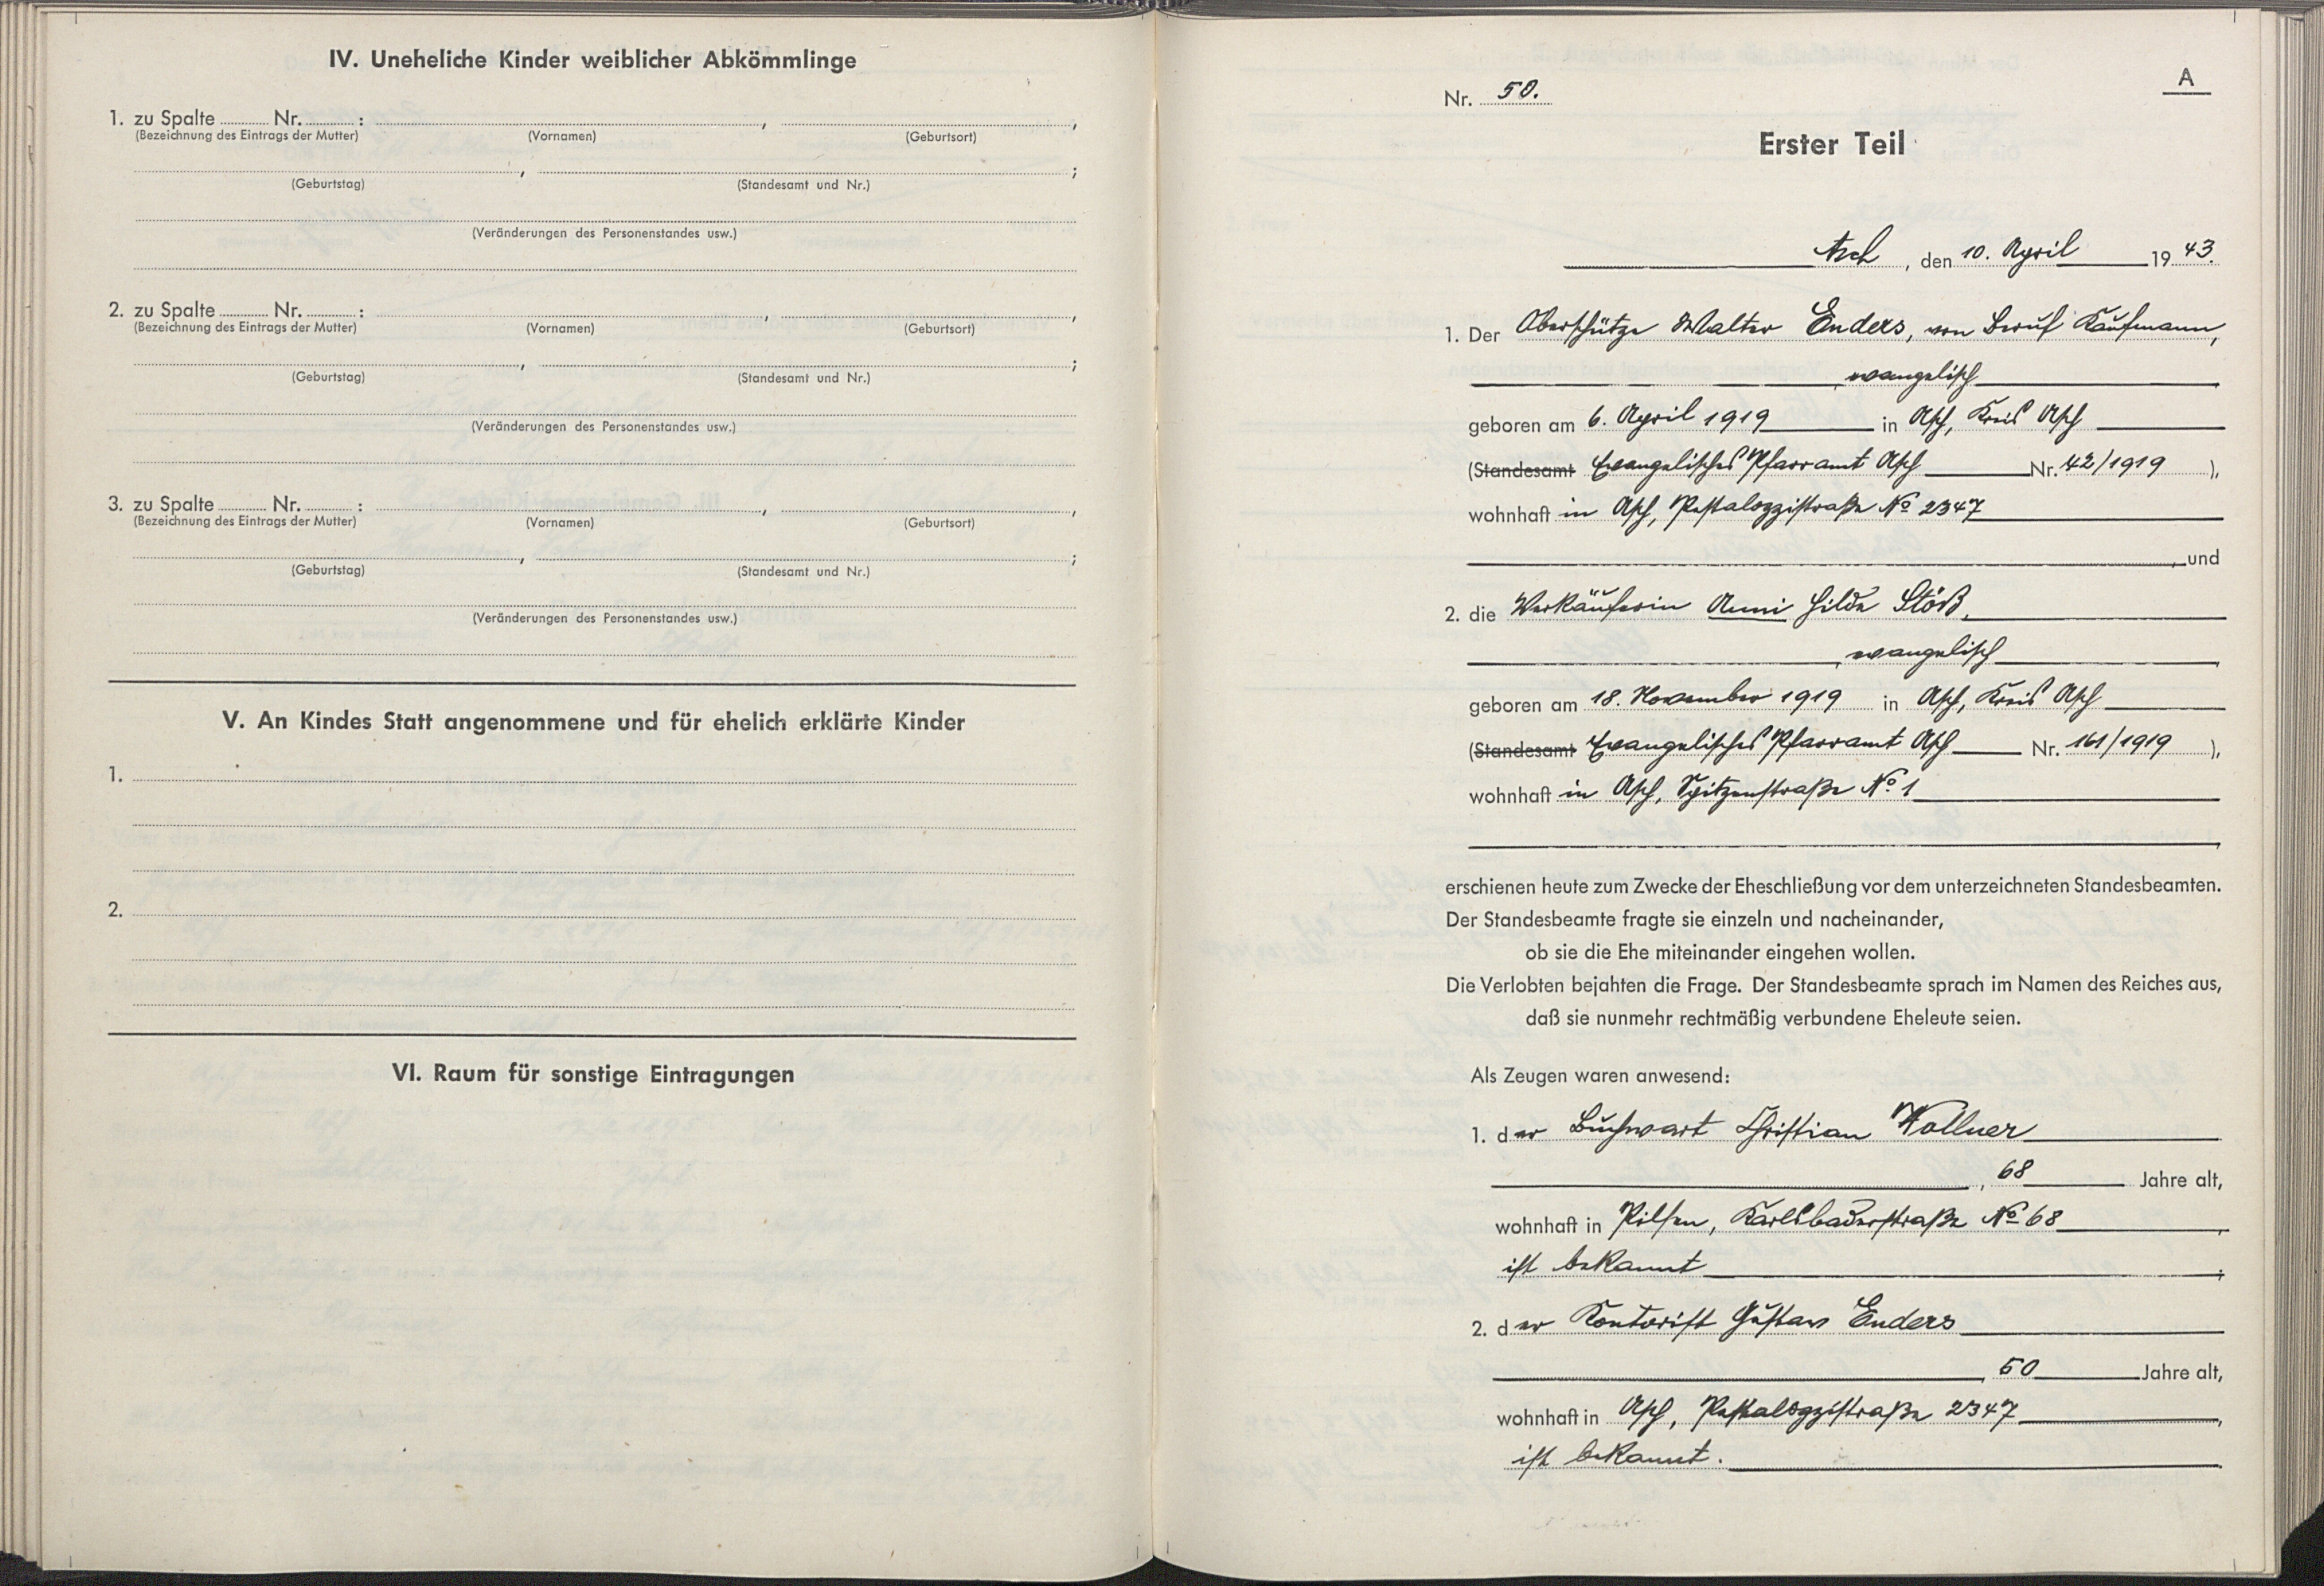 IV. Uneheliche Kinder weiblicher Abkömmlinge
1. zu Spalte ......... Nr. ......... : , ,
(Bezeichnung des Eintrags der Mutter) (Vornamen) (Geburtsort)
, ;
(Geburtstag) (Standesamt und Nr.)
(Veränderungen des Personenstandes usw.)
2. zu Spalte ......... Nr. ......... : , ,
(Bezeichnung des Eintrags der Mutter) (Vornamen) (Geburtsort)
, ;
(Geburtstag) (Standesamt und Nr.)
(Veränderungen des Personenstandes usw.)
3. zu Spalte ......... Nr. ......... : , ,
(Bezeichnung des Eintrags der Mutter) (Vornamen) (Geburtsort)
, ;
(Geburtstag) (Standesamt und Nr.)
(Veränderungen des Personenstandes usw.)
V. An Kindes Statt angenommene und für ehelich erklärte Kinder
1.
2.
VI. Raum für sonstige Eintragungen
A
Nr. 50.
Erster Teil
Asch, den 10. April 1943.
1. Der Oberschütze Walter Enders, von Beruf Kaufmann,
, evangelisch,
geboren am 6. April 1919 in Asch, Kreis Asch
(Standesamt Evangelisches Pfarramt Asch Nr. 42/1919 ),
wohnhaft in Asch, Pestalozzistraße No 2347
, und
2. die Verkäuferin Anni Hilde Stöß,
, evangelisch,
geboren am 18. November 1919 in Asch, Kreis Asch
(Standesamt Evangelisches Pfarramt Asch Nr. 161/1919 ),
wohnhaft in Asch, Spitzenstraße No 1
,
erschienen heute zum Zwecke der Eheschließung vor dem unterzeichneten Standesbeamten.
Der Standesbeamte fragte sie einzeln und nacheinander,
ob sie die Ehe miteinander eingehen wollen.
Die Verlobten bejahten die Frage. Der Standesbeamte sprach im Namen des Reiches aus,
daß sie nunmehr rechtmäßig verbundene Eheleute seien.
Als Zeugen waren anwesend:
1. der Buchwart Christian Wollner
, 68 Jahre alt,
wohnhaft in Pilsen, Karlsbaderstraße No 68,
ist bekannt;
2. der Kontorist Gustav Enders
, 50 Jahre alt,
wohnhaft in Asch, Pestalozzistraße 2347,
ist bekannt.